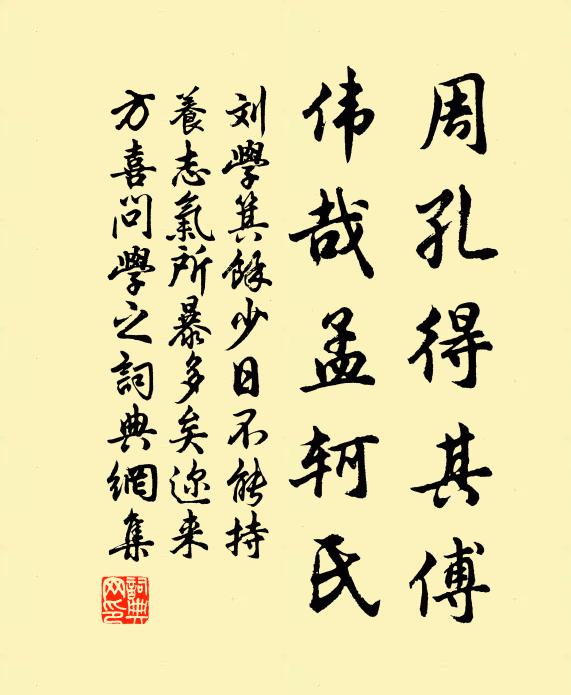 周孔得其傅
伟哉孟轲氏
刘學箕餘少日不能持
養志氣所暴多矣迩来
方喜问學之詞典網集
詞典网印